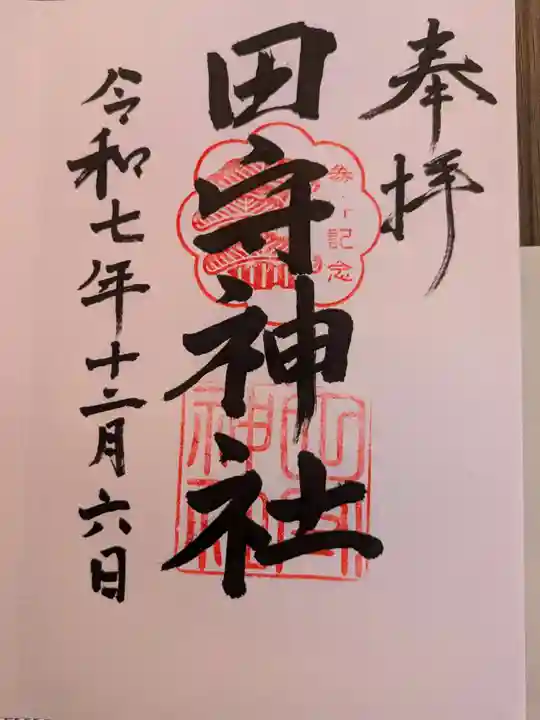 奉拝
田守神社
令和七年十二月六日
記念
田守
神社